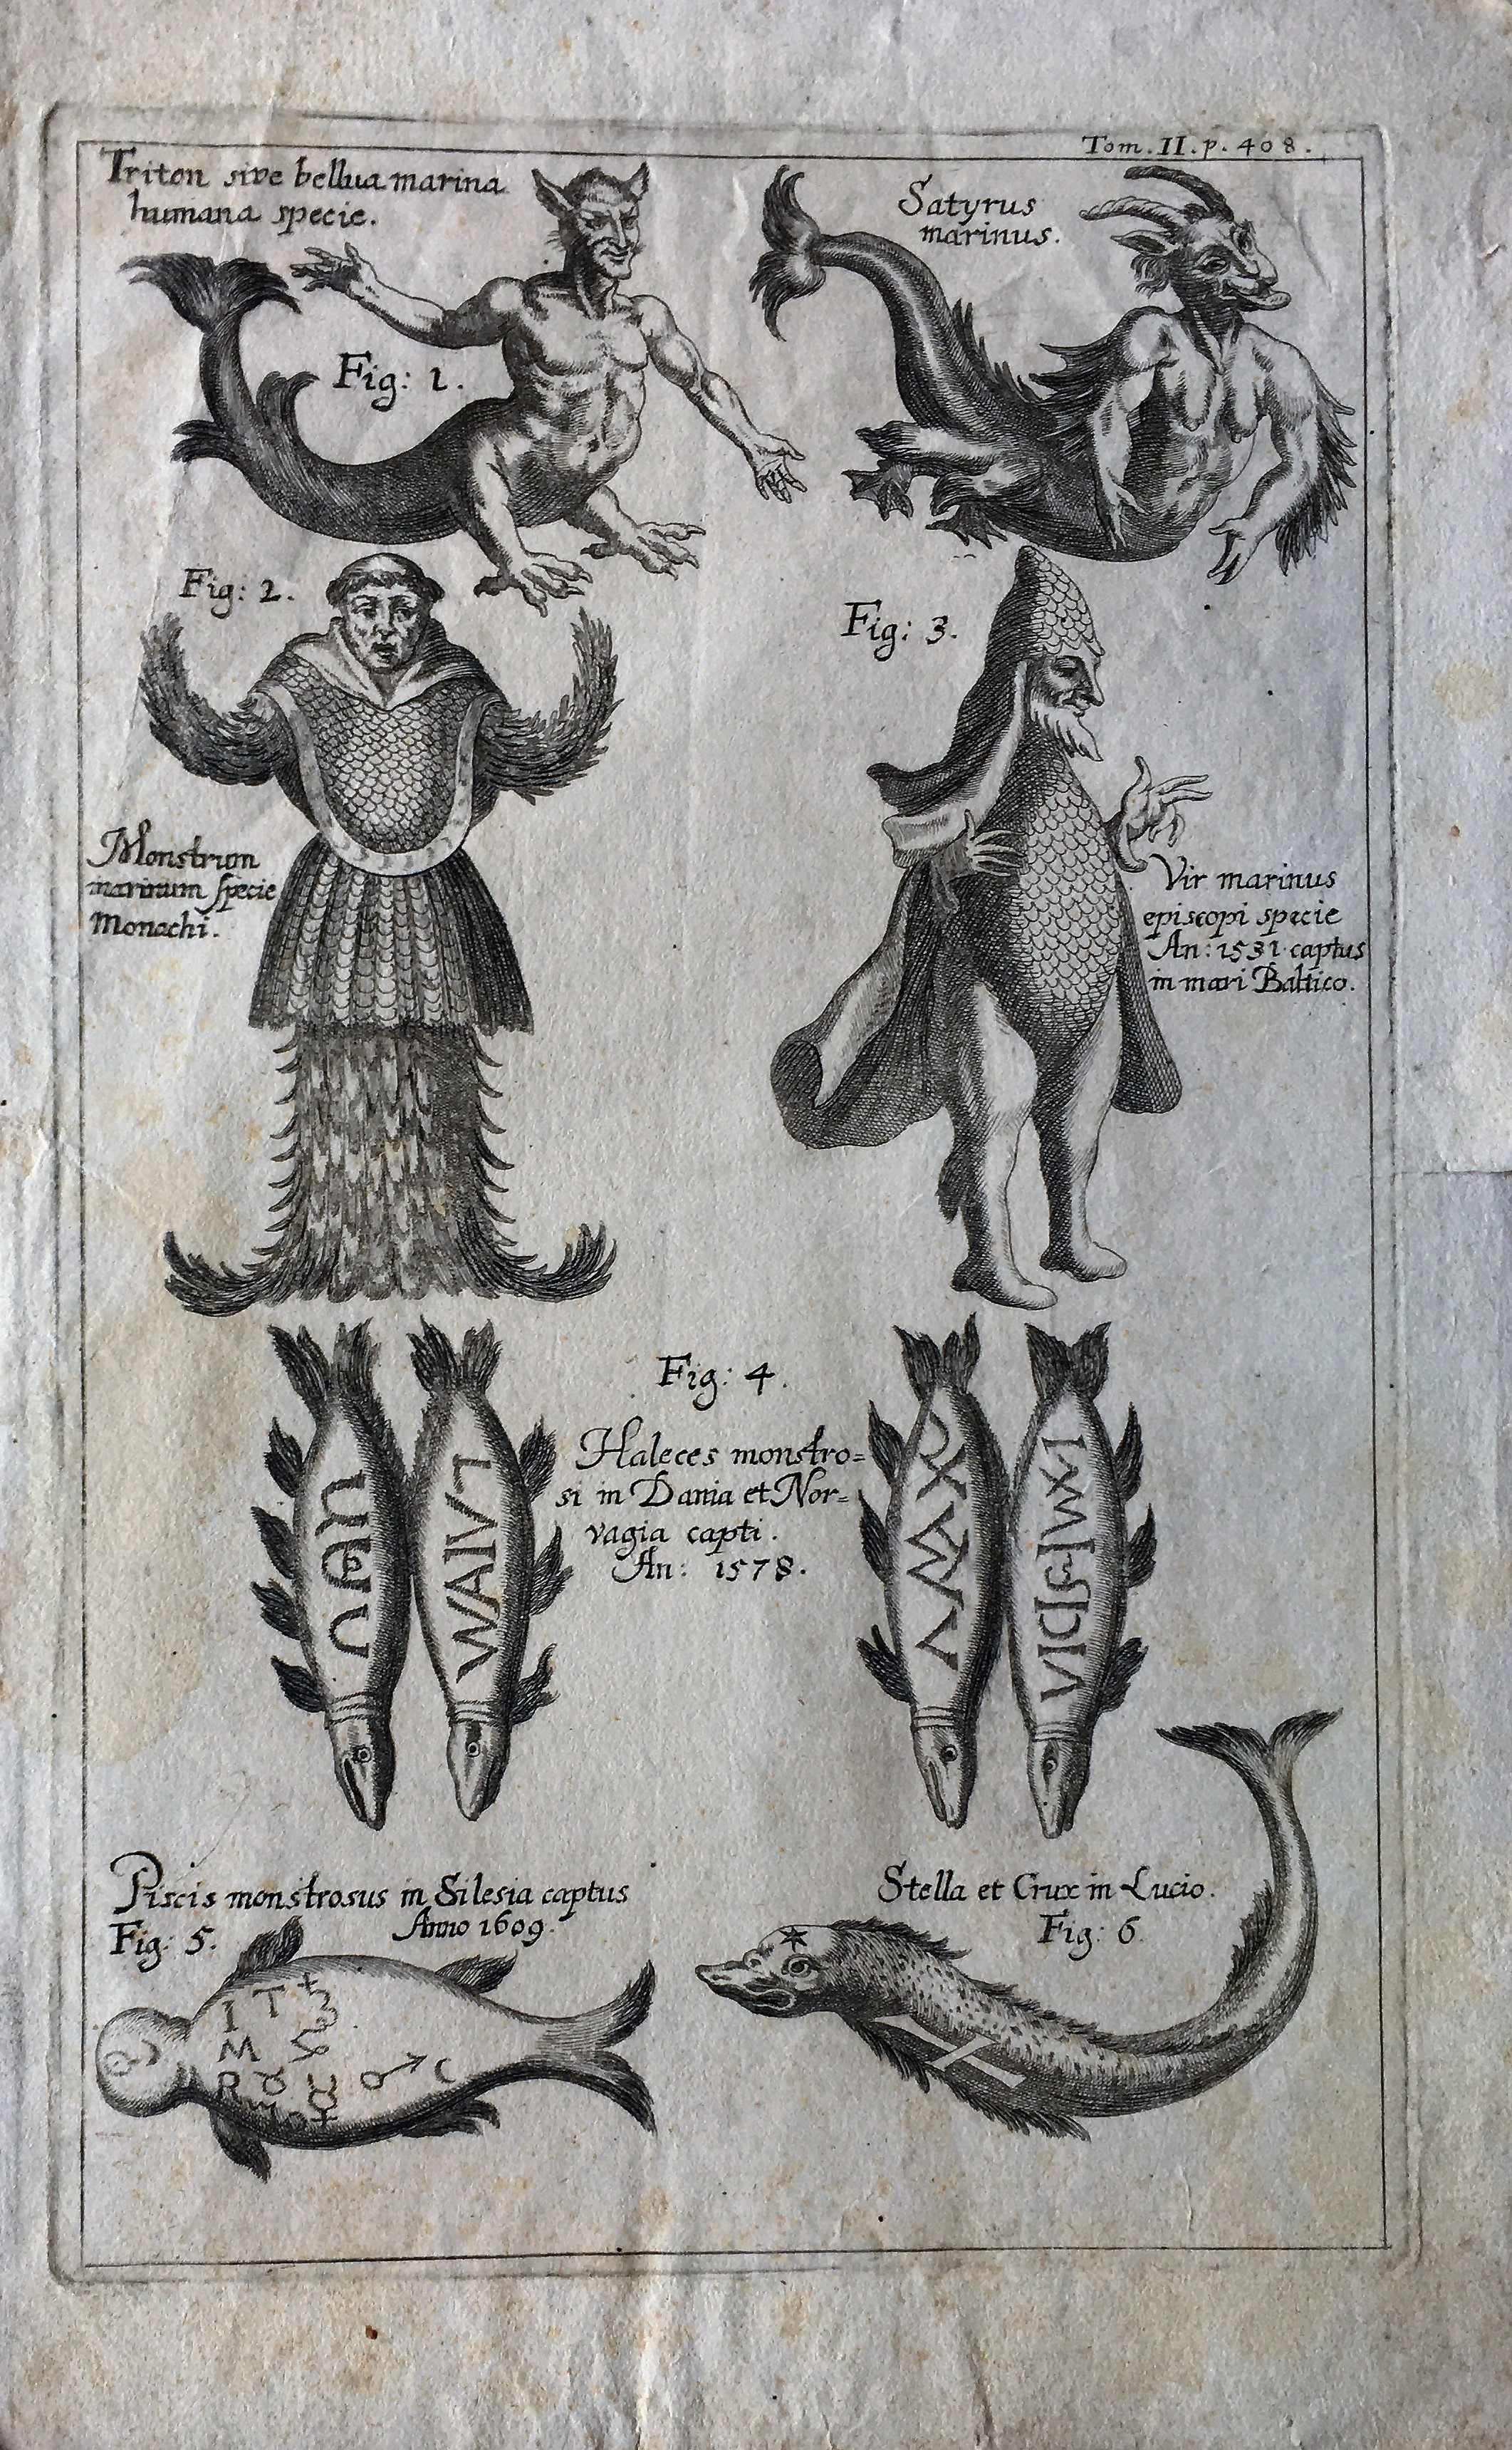 Tom. II. p. 408.
Triton sive bellua marina
humana specie.
Satyrus
marinus.
Fig: 1.
Fig: 2.
Fig: 3.
Monstrum
marinum specie
Monachi.
Vir marinus
episcopi specie
An: 1531 captus
in mari Baltico.
Fig: 4.
Haleces monstro=
si in Dania et Nor=
vagia capti.
An: 1578.
Piscis monstrosus in Silesia captus
Anno 1609.
Fig: 5.
Stella et Crux in Lucio.
Fig: 6
I T
M
R